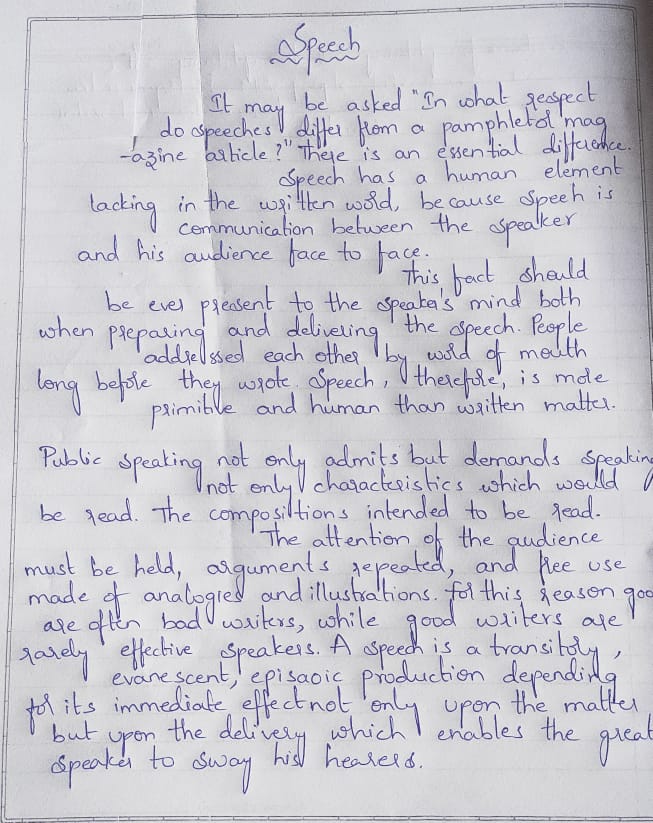 Speech
It may be asked "In what respect
do speeches differ from a pamphlet of mag
-azine article?" There is an essential difference.
Speech has a human element
lacking in the written word, because speeh is
communication between the speaker
and his audience face to face.
This fact should
be ever present to the speaker's mind both
when preparing and delivering the speech. People
addressed each other by word of mouth
long before they wrote. Speech, therefore, is more
primible and human than written matter.
Public speaking not only admits but demands speakin
not only characteristics which would
be read. The compositions intended to be read.
The attention of the audience
must be held, arguments repeated, and free use
made of analogies and illustrations. for this reason goo
are often bad writers, while good writers are
rarely effective speakers. A speech is a transitory,
evanescent, episaoic production depending
for its immediate effect not only upon the matter
but upon the delivery which enables the great
speaker to sway his hearers.